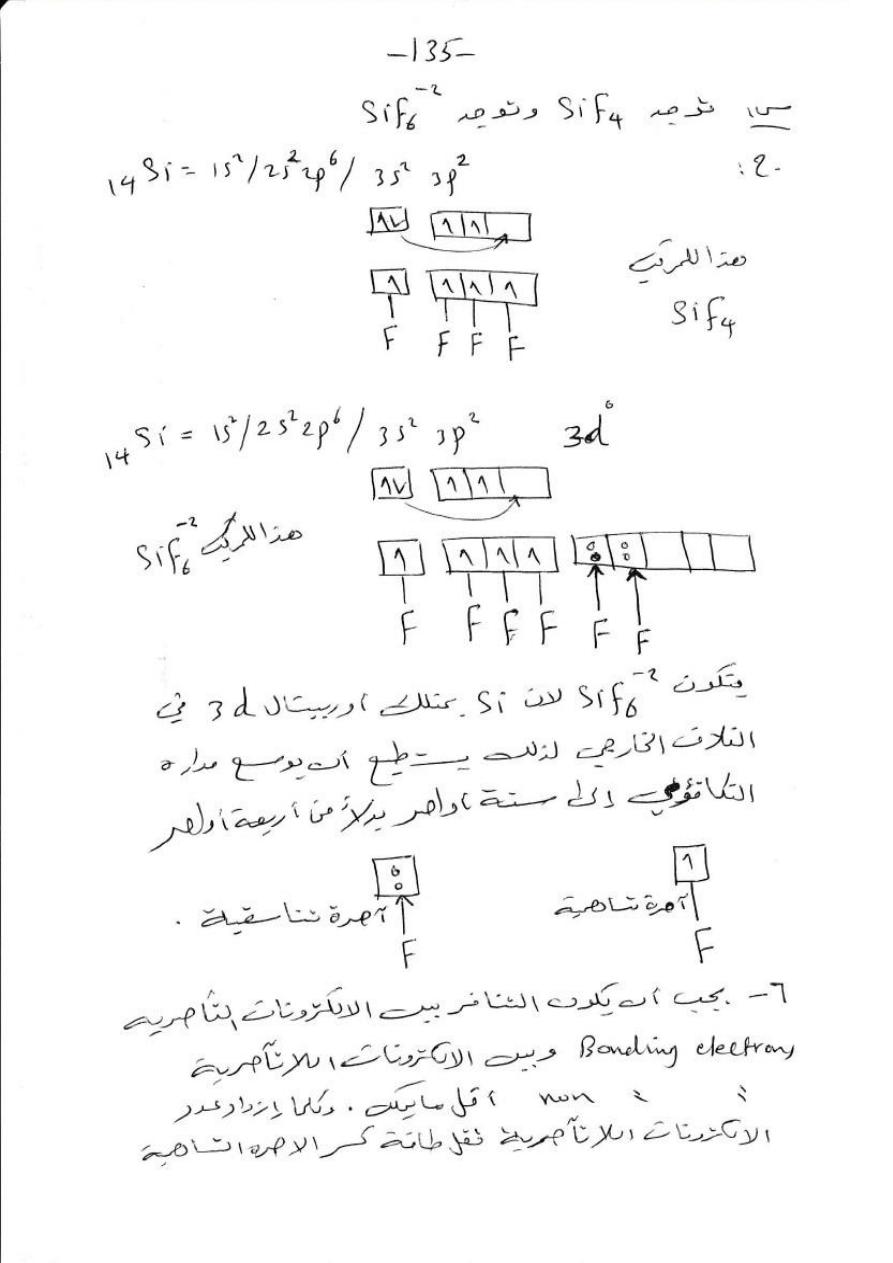 -135-
س/ توجد SiF₄ وتوجد SiF₆⁻²
ج:
₁₄Si = 1s²/2s²2p⁶/ 3s² 3p²
هذا المركب
SiF₄
F F F F
₁₄Si = 1s²/2s²2p⁶/ 3s² 3p² 3d⁰
هذا المركب SiF₆⁻²
F F F F F F
يتكون SiF₆⁻² لان Si يمتلك اوربيتال 3d في
الغلاف الخارجي لذلك يستطيع أن يوسع مداره
التكافؤي إلى ستة أواصر بدلاً من أربعة أواصر
آصرة تساهمية
F
آصرة تناسقية .
F
٦- يجب أن يكون التنافر بين الالكترونات التآصرية
Bonding electrons وبين الالكترونات اللاتآصرية
non أقل ما يمكن . وكلما إزداد عدد
الالكترونات اللاتآصرية تقل طاقة كسر الاصرة التساهمية